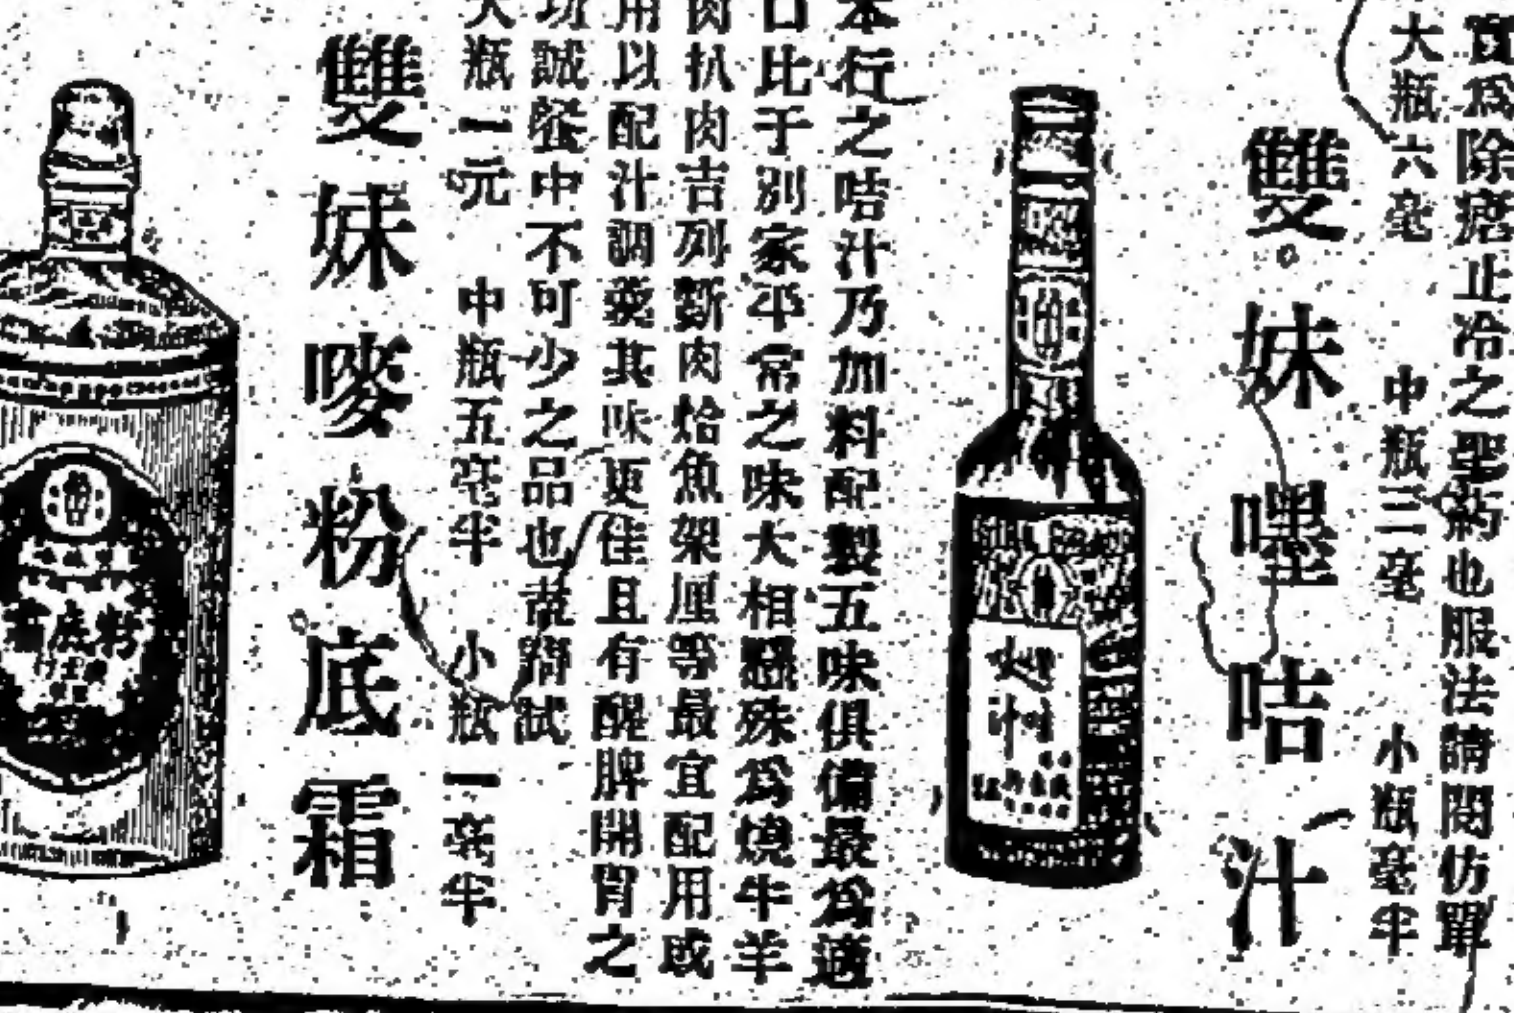 實爲除痰止冷之聖葯也服法請閱仿單
大瓶六毫 中瓶三毫 小瓶毫半
雙妹嚜咭汁
本行之咭汁乃加料配製五味俱備最爲適
口比于別家平常之味大相懸殊爲燒牛羊
肉扒肉吉列斵肉烚魚架厘等最宜配用或
用以配汁調羹其味更佳且有醒脾開胃之
功誠餐中不可少之品也苐請試
大瓶一元 中瓶五毫半 小瓶一毫半
雙妹嘜粉底霜
粉底霜